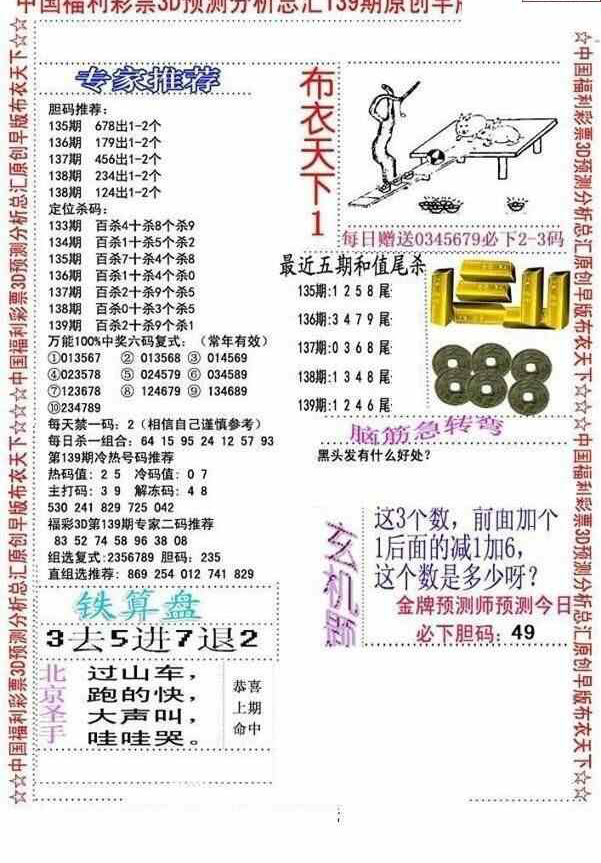 中国福利彩票3D预测分析总汇139期原创早版
☆☆中国福利彩票3D预测分析总汇原创早版布衣天下☆☆☆中国福利彩票3D预测分析总汇原创早版布衣天下☆☆
专家推荐
胆码推荐:
135期 678出1-2个
136期 179出1-2个
137期 456出1-2个
138期 234出1-2个
138期 124出1-2个
定位杀码:
133期 百杀4十杀8个杀9
134期 百杀1十杀5个杀2
135期 百杀7十杀4个杀8
136期 百杀1十杀4个杀0
137期 百杀2十杀9个杀5
138期 百杀0十杀3个杀5
139期 百杀2十杀9个杀1
万能100%中奖六码复式:(常年有效)
①013567 ② 013568 ③ 014569
④023578 ⑤ 024579 ⑥ 034589
⑦123678 ⑧ 124679 ⑨ 134689
⑩234789
每天禁一码:2(相信自己谨慎参考)
每日杀一组合:64 15 95 24 12 57 93
第139期冷热号码推荐
热码值:2 5 冷码值:0 7
主打码:3 9 解冻码:4 8
530 241 829 725 042
福彩3D第139期专家二码推荐
83 52 74 58 96 38 08
组选复式:2356789 胆码:235
直组选推荐:869 254 012 741 829
铁算盘
3去5进7退2
北京圣手
过山车,
跑的快,
大声叫,
哇哇哭。
恭喜
上期
命中
布衣天下1
每日赠送0345679必下2-3码
最近五期和值尾杀
135期:1 2 5 8 尾
136期:3 4 7 9 尾
137期:0 3 6 8 尾
138期:1 3 4 8 尾
139期:1 2 4 6 尾
脑筋急转弯
黑头发有什么好处?
玄机题
这3个数,前面加个
1后面的减1加6,
这个数是多少呀?
金牌预测师预测今日
必下胆码:49
☆中国福利彩票3D预测分析总汇原创早版布衣天下☆☆☆中国福利彩票3D预测分析总汇原创早版布衣天下☆☆